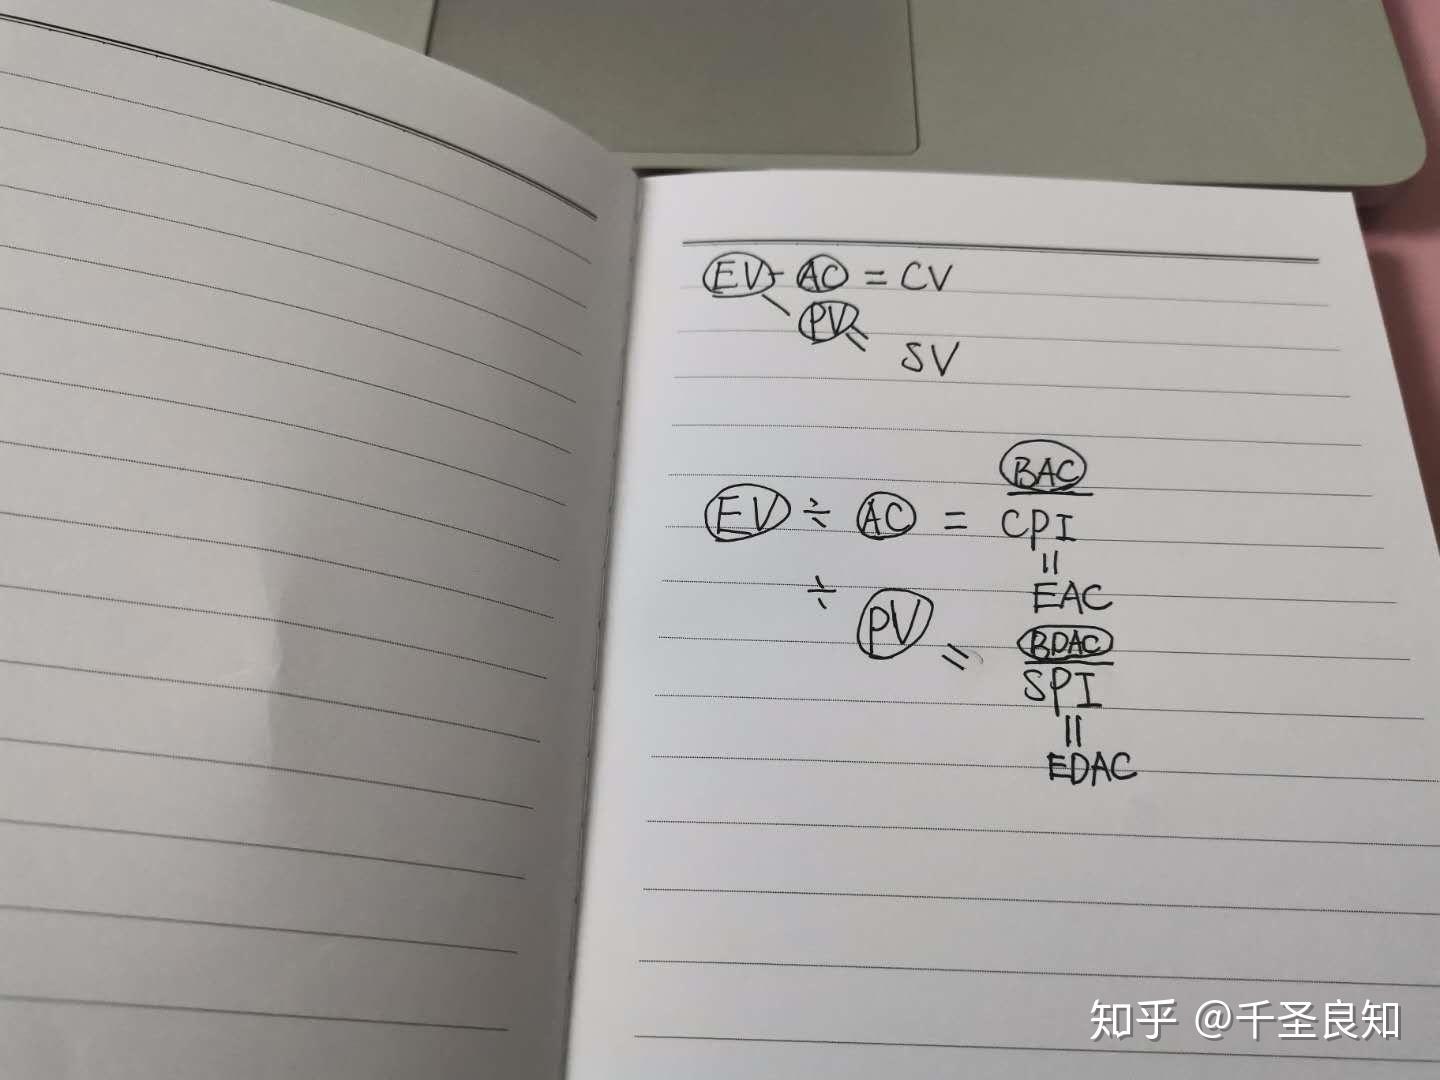 EV - AC = CV
\ PV =
SV
BAC
EV ÷ AC = CPI
=
EAC
÷ PV =
BDAC
SPI
=
EDAC
知乎 @千圣良知